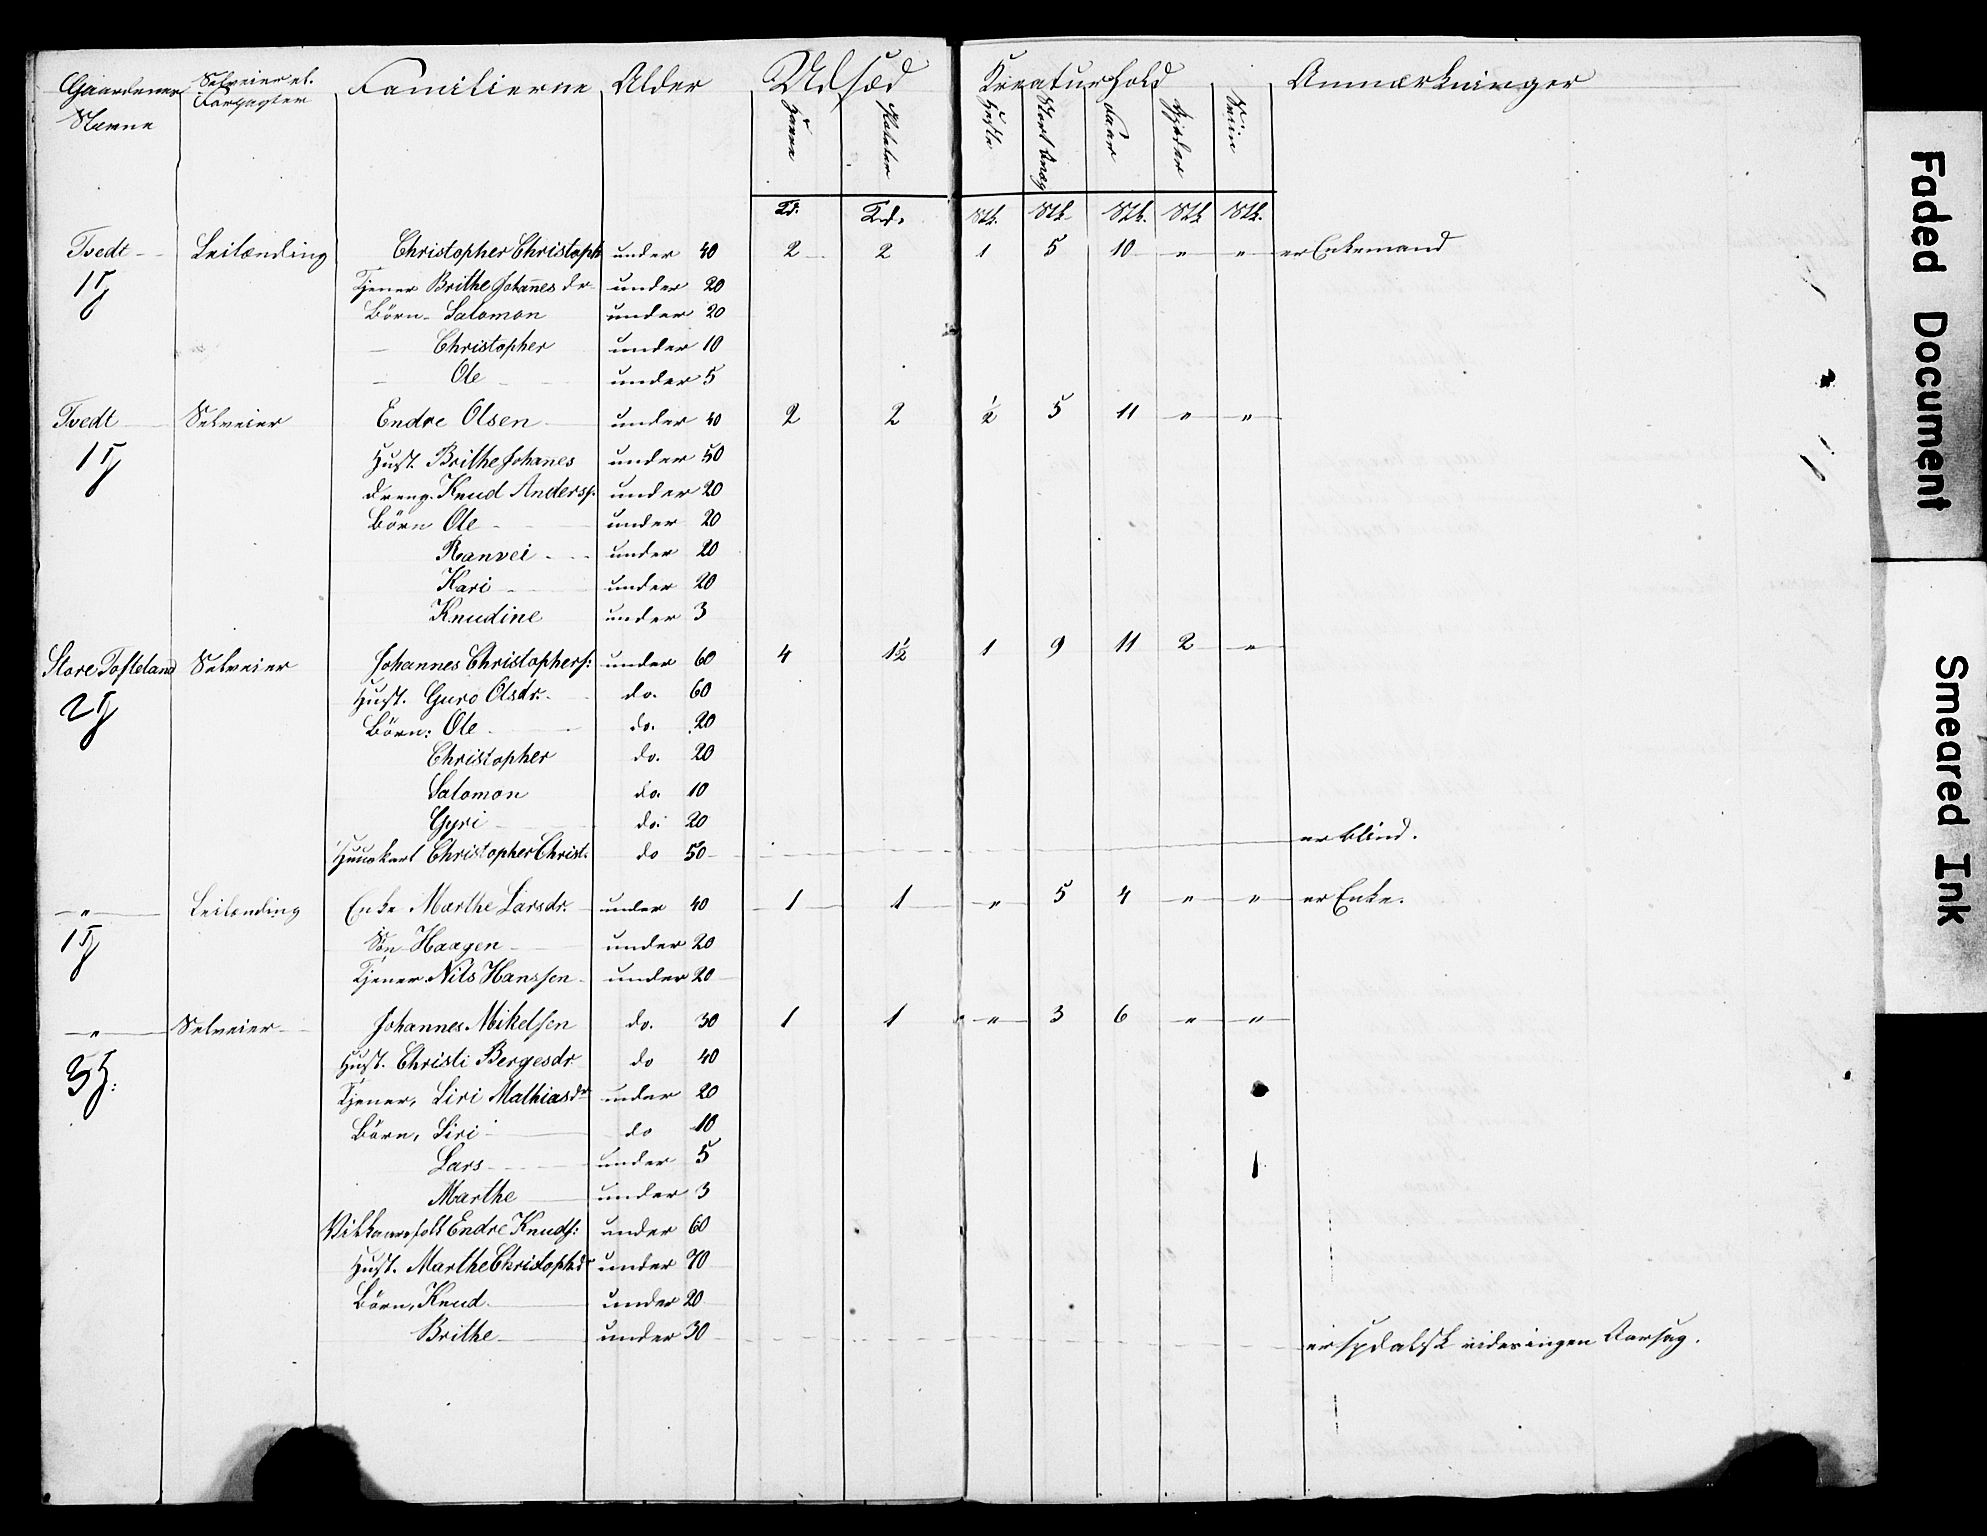 Gaardenes Navne	Selveier el. Forpagter	Familierne	Alder	Udsæd	Kreaturhold	Anmærkninger
Havre	Poteter	Heste	Stort Qvæg	Faar	Gjeder	Sviin
Td.	Td.	Stk.	Stk	Stk.	Stk	Stk.
Tvedt	Leilænding	Christopher Christoph	under 40	2	2	1	5	10	"	"	er Enkemand
1	Tjener Brithe Johannesdr	under 20
Börn Salomon	under 20
Christopher	under 10
Ole	under 5
Tvedt	Selveier	Endre Olsen	under 40	2	2	½	5	11	"	"
1	Hust. Brithe Johannes	under 50
dreng. Knud Anders.	under 20
Börn Ole	under 20
Ranvei	under 20
Kari	under 20
Knudine	under 3
Store Tofteland	Selveier	Johannes Christophers:	under 60	4	1½	1	9	11	2	"
2	Hust. Guro Olsdr.	do. 60
Börn: Ole	do. 20
Christopher	do. 20
Salomon	do. 10
Gyri	do: 20
Huuskarl Christopher Christ.	do 50	er blind.
"	Leilænding	Enke Marthe Larsdr.	under 40	1	1	"	5	4	"	"	er Enke.
1	Sön Haagen	under 20
Tjener Nils Hanssen	under 20
"	Selveier	Johannes Mikelsen	do. 30	1	1	"	3	6	"	"
3	Hust. Christi Bergesdr	do 40
Tjener, Siri Mathiasdr	under 20
Börn, Siri	do 10
Lars	under 5
Marthe	under 3
Vilkaarsfolk Endre Knuds:	under 60
Hust. Marthe Christophdr	under 70
Börn, Knud	under 20
Brithe	under 30	er spdalsk vides ingen Aarsag.
Faded Document
Smeared Ink